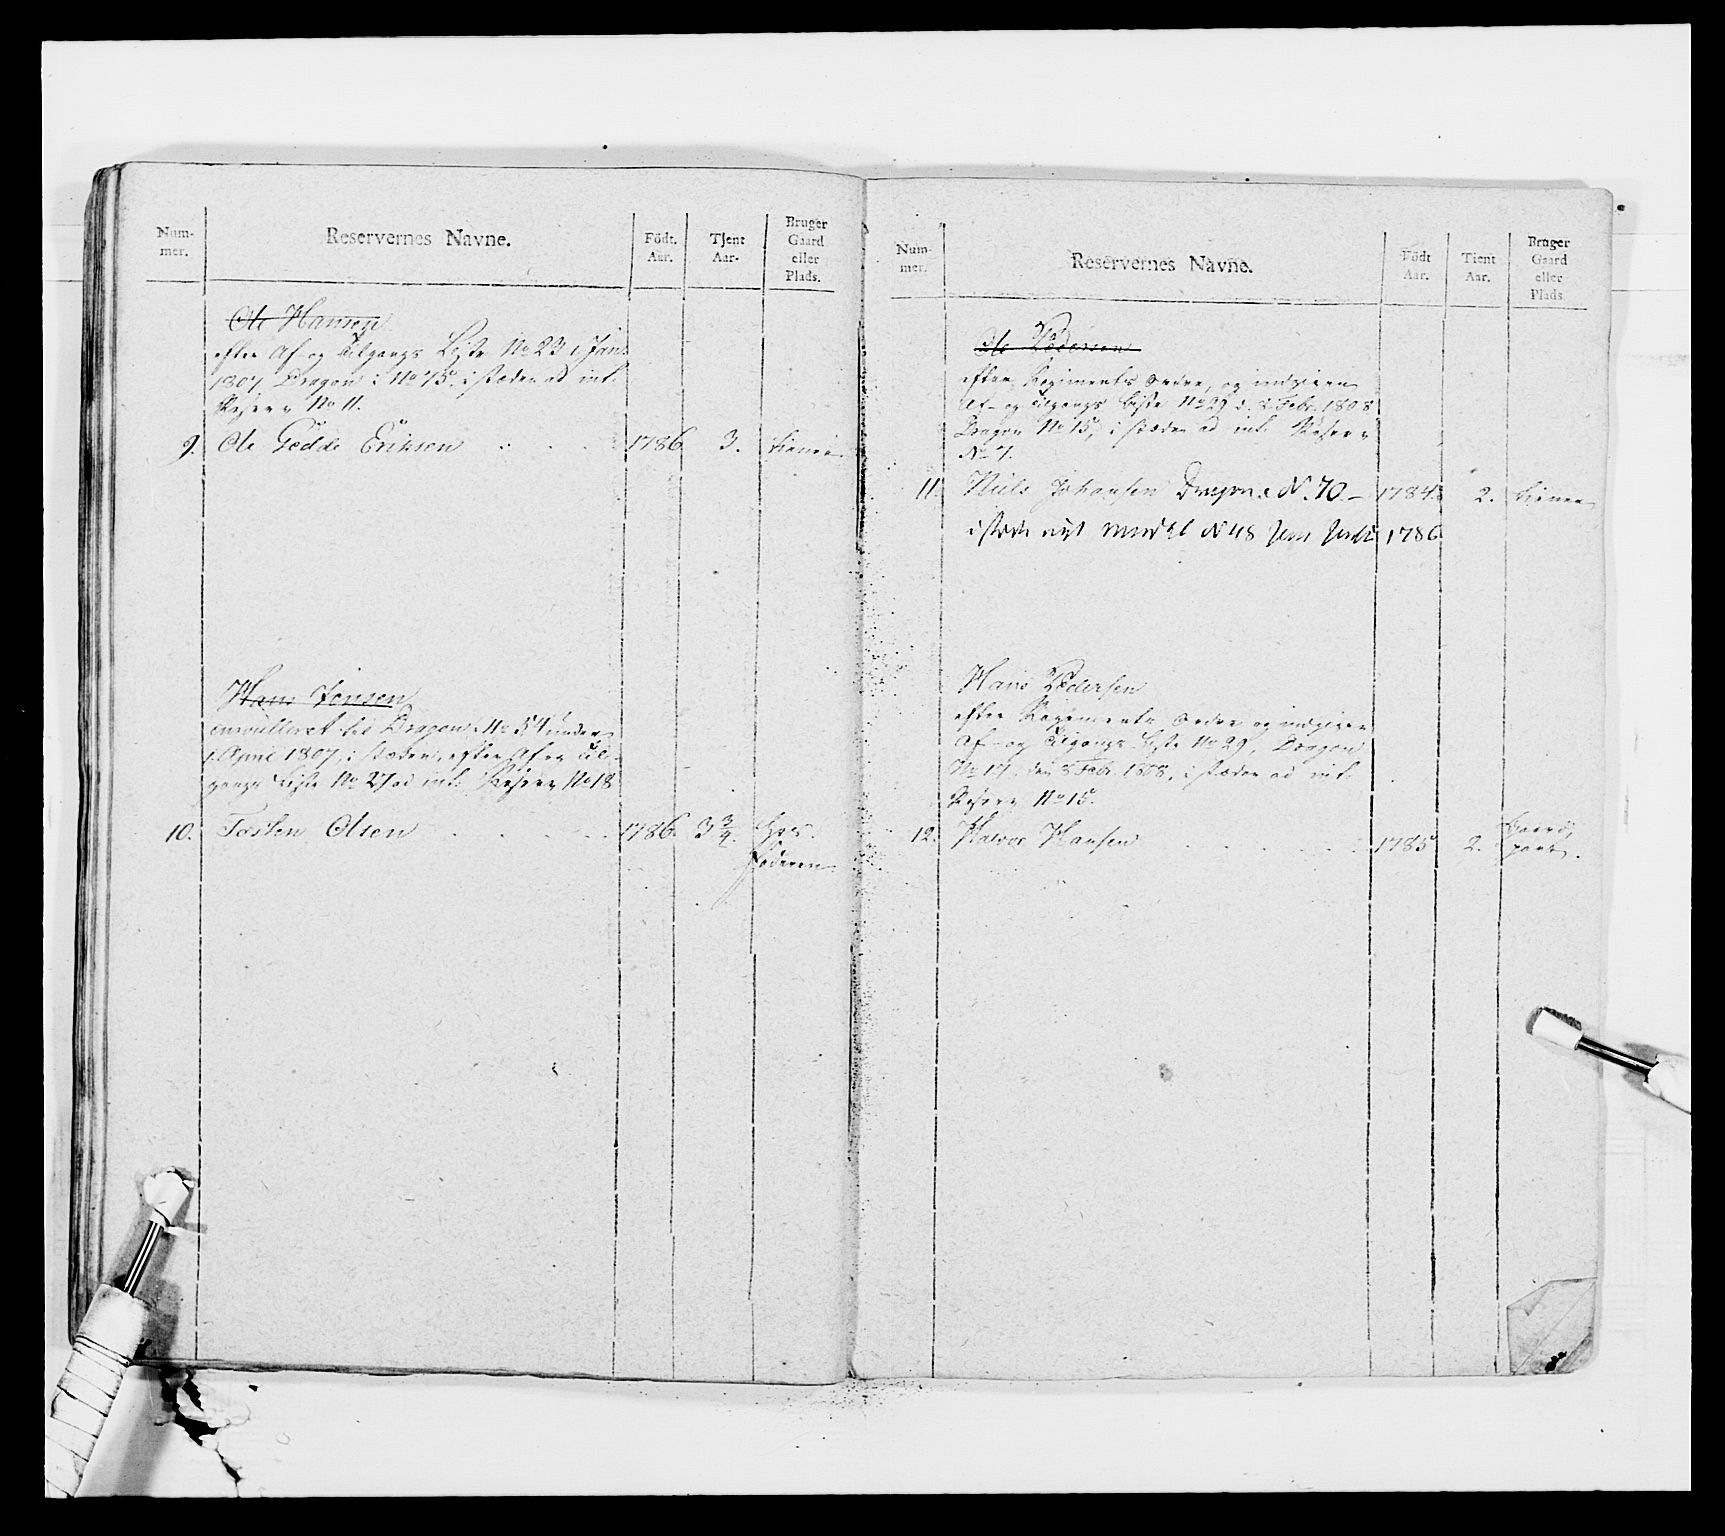 Num-
mer.
Reservernes Navne.
Födt.
Aar.
Tjent
Aar.
Bruger
Gaard
eller
Plads.
Ole Hansen
efter Af- og Tilgangs Liste No 23 1 Jan:
1807 Dragon No 75, i stæden ad int:
Reserv No 11.
9. Ole Gedde Eriksen 1786 3. tiener
Hans Jensen
enroulleret til Dragon No 54 under
1 April 1807, i stæden, efter Af og Til-
gangs Liste No 27 ad int: Reserv No 18
10. Tosten Olsen 1786 3 3/4. Hos
Faderen
Num-
mer.
Reservernes Navne.
Födt
Aar.
Tient
Aar.
Bruger
Gaard
eller
Plads.
Ole Pedersen
efter Regiments Ordre, og indgiven
Af- og Tilgangs Liste No 29 d. 8 Febr. 1808
Dragon No 15, i stæden ad int: Reserv
No 7.
11. Niels Johansen Dragon N. 70.- 1784. 2. tiener
istæden N 48 1786
Hans Pedersen
efter Regiments Ordre og indgiven
Af- og Tilgangs Liste No 29, Dragon
No 17, den 8 Febr. 1808, i stæden ad int:
Reserv No 15.
12. Halvor Hansen 1785 2. Gaard
part.